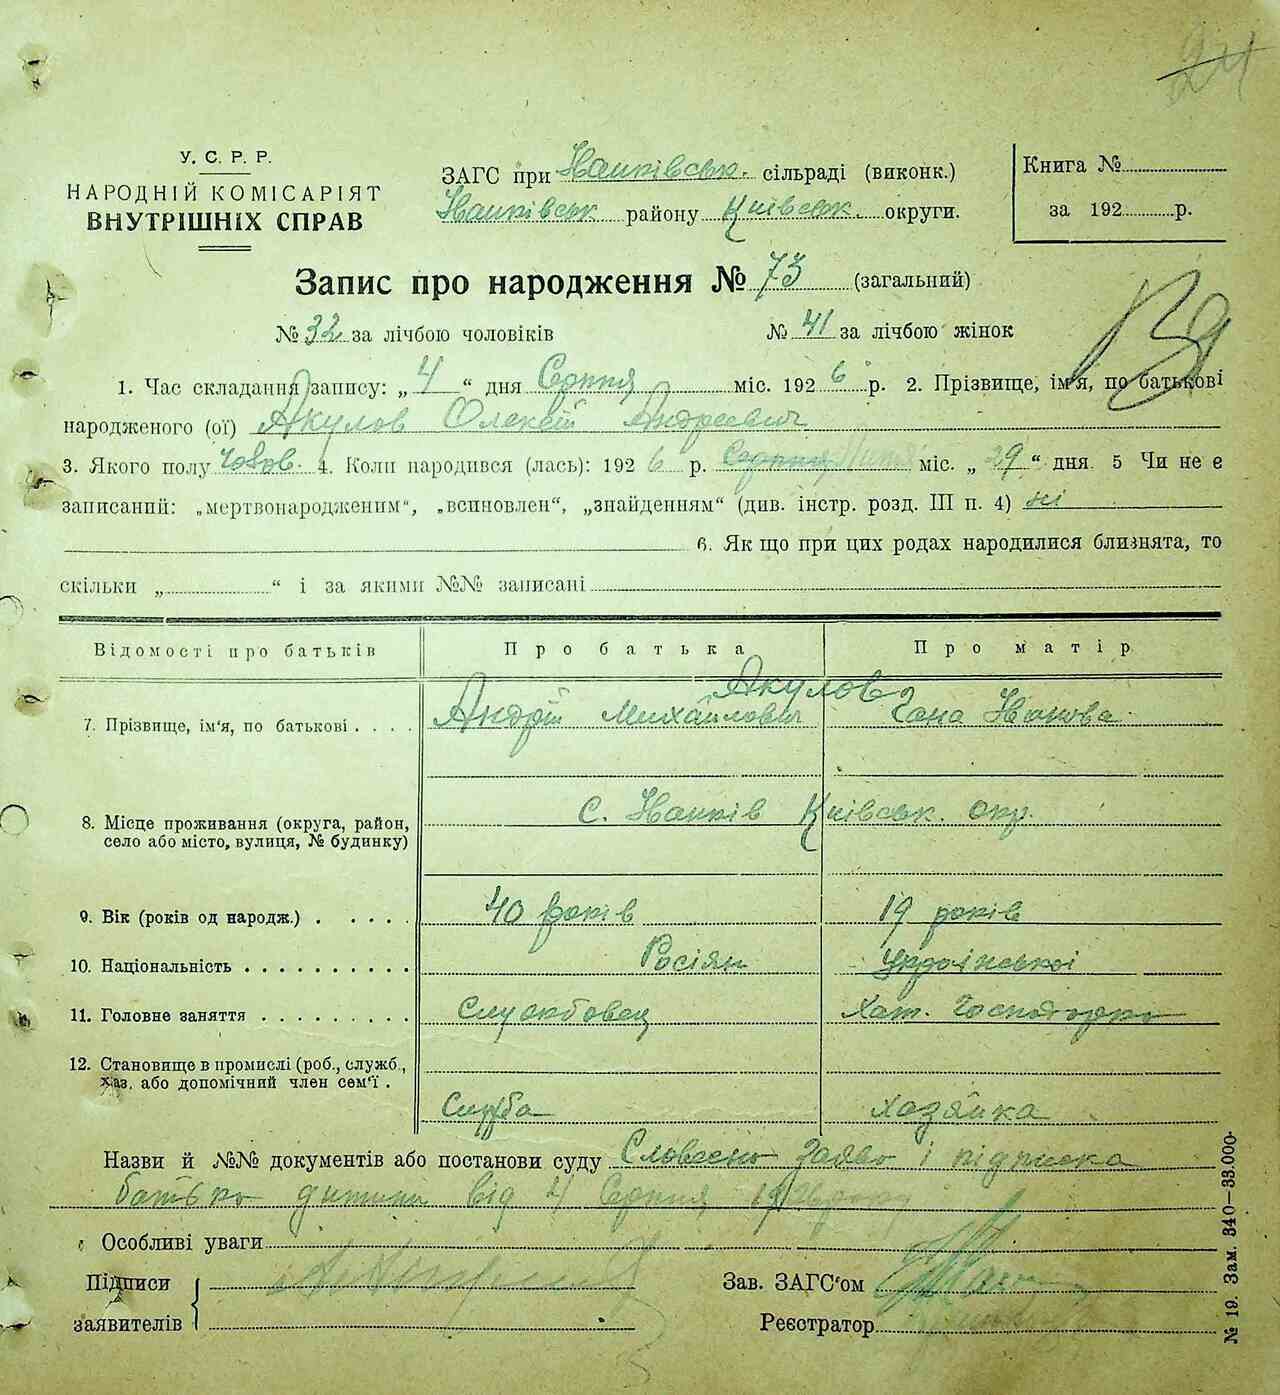 24
У. С. Р. Р.
НАРОДНІЙ КОМІСАРІЯТ
ВНУТРІШНІХ СПРАВ
ЗАГС при Іванківськ. сільраді (виконк.)
Іванківськ району Київськ. округи.
Книга №
за 192 р.
Запис про народження № 73 (загальний)
№ 32 за лічбою чоловіків № 41 за лічбою жінок
1. Час складання запису: „ 4 “ дня Серпня міс. 192 6 р. 2. Прізвище, ім'я, по батькові
народженого (ої) Акулов Олексій Андреевич
3. Якого полу чолов. 4. Коли народився (лась): 192 6 р. Серпня Липня міс. „ 29 “ дня. 5 Чи не є
записаний: „мертвонародженим“, „всиновлен“, „знайденням“ (див. інстр. розд. III п. 4) ні
6. Як що при цих родах народилися близнята, то
скільки „ “ і за якими №№ записані
Відомості про батьків Про батька Про матір
Акулов
7. Прізвище, ім‘я, по батькові . . . . Андрій Михайлович Ганна Іванова
8. Місце проживання (округа, район, с. Іванків Київськ. окр.
село або місто, вулиця, № будинку)
9. Вік (років од народж.) . . . . . 40 років 19 років
10. Національність . . . . . . . . . . Росіян української
11. Головне заняття . . . . . . . . . Службовец Хат. Господарка
12. Становище в промислі (роб., служб.,
хаз. або допомічний член сем'ї .
Служба хазяйка
Назви й №№ документів або постанови суду Словесно заява і підписка
батька дитини від 4 Серпня
Особливі уваги
Підписи
заявителів
Зав. ЗАГС‘ом
Реєстратор
№ 19. Зам. 340—33.000.